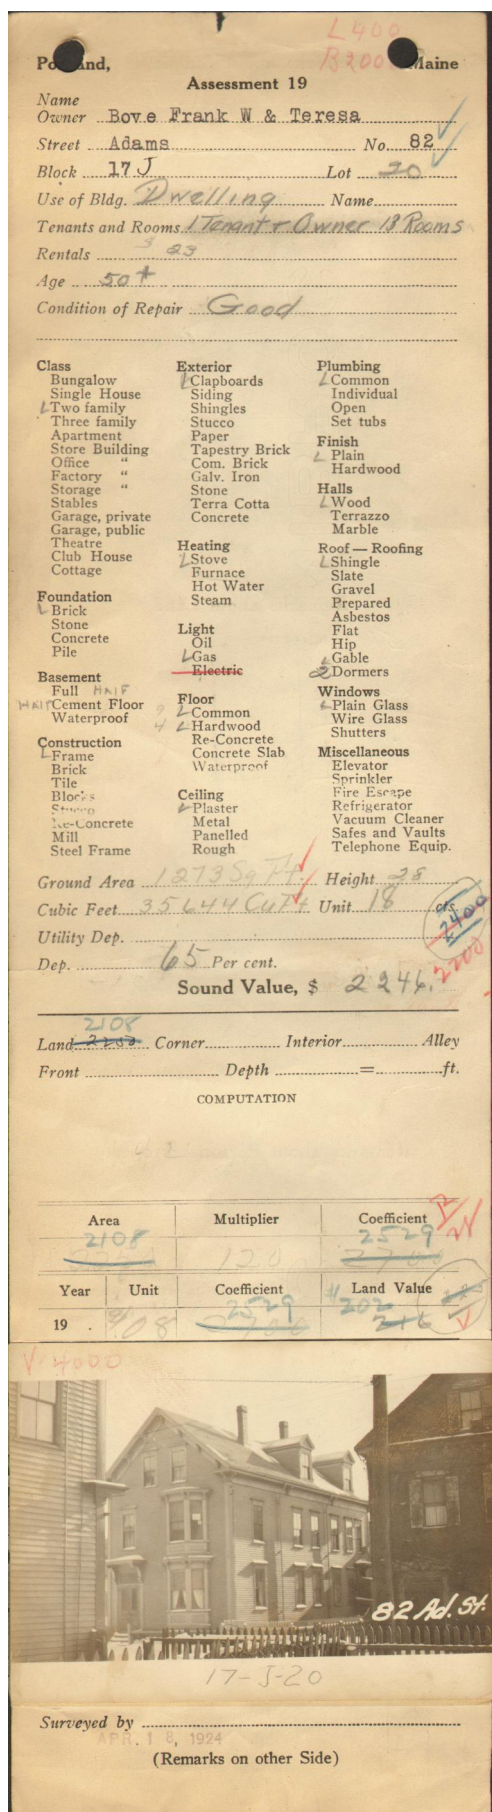 L400
B2000
Portland, Maine
Assessment 19
Name
Owner Bove Frank W & Teresa
Street Adams No. 82
Block 17 J Lot 20
Use of Bldg. Dwelling Name
Tenants and Rooms 1 Tenant & Owner 13 Rooms
Rentals $ 23
Age 50+
Condition of Repair Good
Class
Bungalow
Single House
Two family
Three family
Apartment
Store Building
Office "
Factory "
Storage "
Stables
Garage, private
Garage, public
Theatre
Club House
Cottage
Foundation
Brick
Stone
Concrete
Pile
Basement
Full HALF
HALF Cement Floor
Waterproof
Construction
Frame
Brick
Tile
Blocks
Stucco
Re-Concrete
Mill
Steel Frame
Exterior
Clapboards
Siding
Shingles
Stucco
Paper
Tapestry Brick
Com. Brick
Galv. Iron
Stone
Terra Cotta
Concrete
Heating
Stove
Furnace
Hot Water
Steam
Light
Oil
Gas
Electric
Floor
Common
Hardwood
Re-Concrete
Concrete Slab
Waterproof
Ceiling
Plaster
Metal
Panelled
Rough
Plumbing
Common
Individual
Open
Set tubs
Finish
Plain
Hardwood
Halls
Wood
Terrazzo
Marble
Roof — Roofing
Shingle
Slate
Gravel
Prepared
Asbestos
Flat
Hip
Gable
2 Dormers
Windows
Plain Glass
Wire Glass
Shutters
Miscellaneous
Elevator
Sprinkler
Fire Escape
Refrigerator
Vacuum Cleaner
Safes and Vaults
Telephone Equip.
Ground Area 1273 Sq Ft. Height 28
Cubic Feet 35644 Cu Ft Unit 18 cts.
2400
Utility Dep.
2200
Dep. 65 Per cent.
Sound Value, $ 2246.
2108
Land 2250 Corner Interior Alley
Front Depth = ft.
COMPUTATION
Area Multiplier Coefficient
2108 2529
120 2700
Year Unit Coefficient Land Value
2529 $202
19 . 08 2700 216
V 4000
82 Ad. St.
17-J-20
Surveyed by
APR. 18, 1924
(Remarks on other Side)